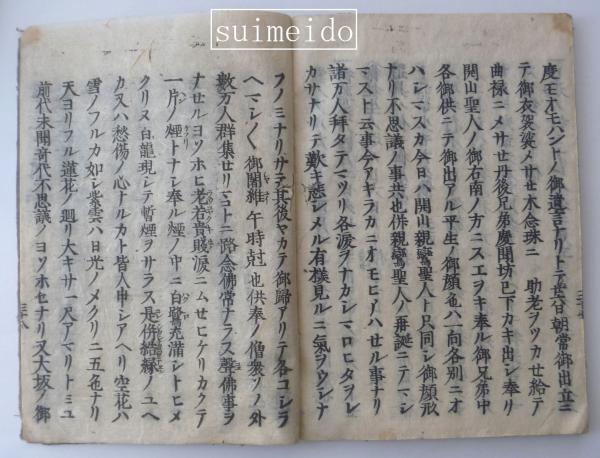 suimeido
慶モオモハントノ御遺言ナリトテ其日朝常御出立ニ
テ御衣袈裟メサセ木念珠ニ 助老ヲツカセ給テ
曲禄ニメサセ丹後兄弟慶聞坊已下カキ出シ奉リ
開山聖人ノ御右南ノ方ニスエヲキ奉ル御兄弟中
各御供ニテ御出アル平生ノ御顔色ハ一向各別ニオ
ハシマスカ今日ハ開山親鸞聖人ト只同シ御顔形
ナリ不思議ノ事共也併親鸞聖人ノ再誕ニテマシ
マスト云事今アキラカニオモヒアハセル事ナリ
諸万人拜タテマツリ各涙ヲナカシマロヒタヲレ
カサナリテ歎キ悲シメル有様見ルニ氣ヲウシナ
フノミナリサテ其後ヤカテ御歸アリテ各コシラ
ヘマシ〱御闍維午時尅也供奉ノ僧衆ソノ外
數万人群集セリマコトニ路念佛常ナラス聲佛事ヲ
ナセルヨソホヒ老若貴賤涙ニムセヒケリカクテ
一片ノ煙トナシ奉ル煙ノ中ニ白鷺充滿シトヒメ
クリヌ白龍現シテ暫煙ヲサラス是併結縁ノユヘ
カ又ハ愁傷ノ心ナルカト皆人申シアヘリ空花ハ
雪ノフルカ如シ紫雲ハ日光ノメクリニ五色ナリ
天ヨリフル蓮花ノ廻リ大キサ一尺アマリトミユ
前代未聞奇代不思議ノヨソホセナリ又大坂ノ御